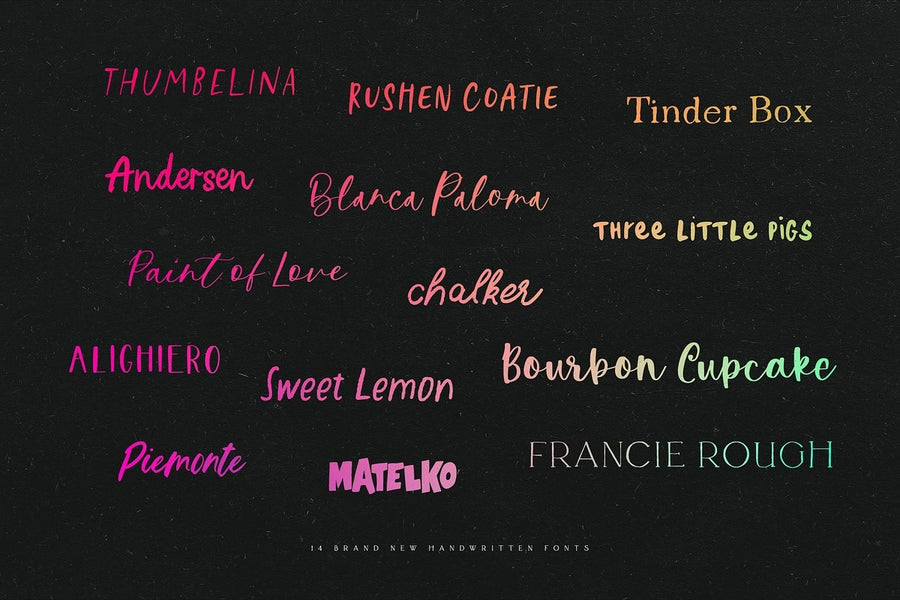 THUMBELINA
RUSHEN COATIE
Tinder Box
Andersen
Blanca Paloma
THree LiTTLe PiGS
Paint of Love
chalker
ALIGHIERO
Sweet Lemon
Bourbon Cupcake
Piemonte
MATELKO
FRANCIE ROUGH
14 BRAND NEW HANDWRITTEN FONTS